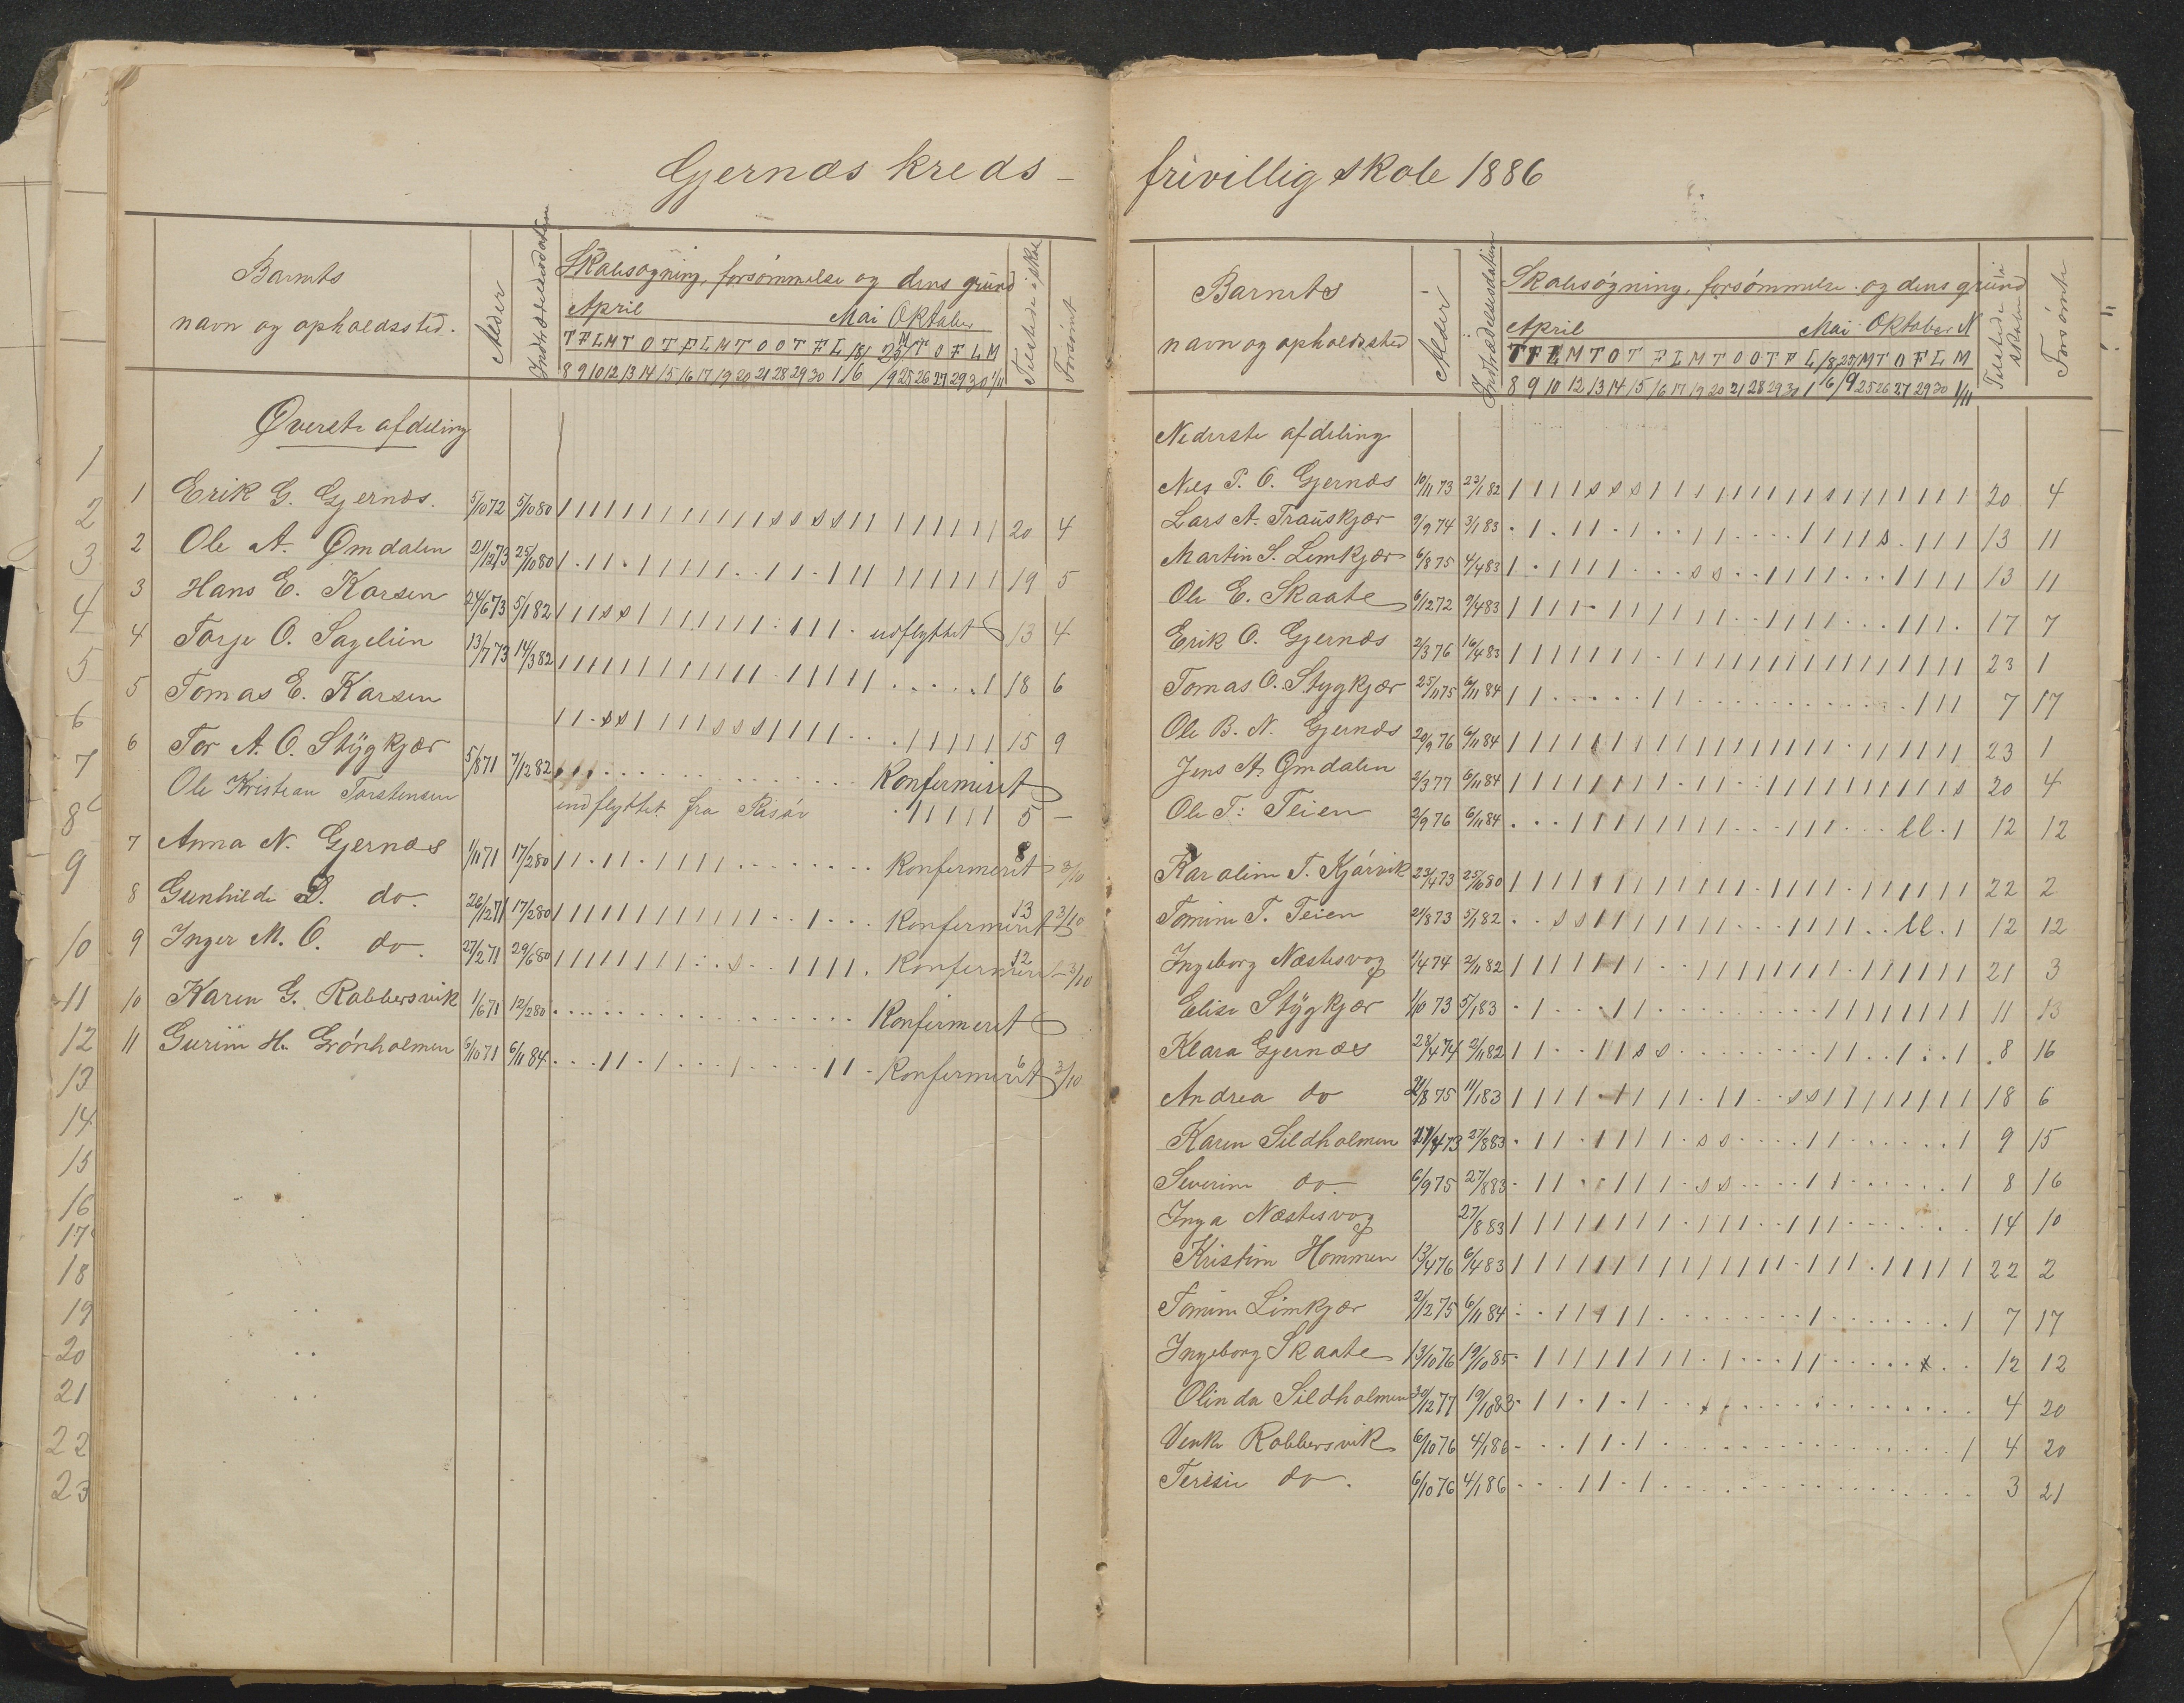 Gjernæs kreds –
Barnets
navn og opholdssted.
Alder
Indtrædelsesdatum
Skolesøgning, forsømmelse og dens grund
April Mai Oktober
Tilstede i skolen
Forsømt
Øverste afdeling
1 Erik G. Gjernæs. 5/10 72 5/10 80 20 4
2 Ole A. Ømdalen 21/12 73 25/10 80 19 5
3 Hans E. Karsen 24/6 73 5/1 82 udflyttet 13 4
4 Torje O. Sagelien 13/7 73 14/3 82 18 6
5 Tomas E. Karsen 15 9
6 Tor A. O. Stÿgkjær 5/8 71 7/12 82 Konfermeret
Ole Kristian Torstensen indflyttet fra Risør 5 –
7 Anna N. Gjernæs 1/11 71 17/2 80 Konfermeret 8 3/10
8 Gunhilde S. do. 26/12 71 17/2 80 Konfermeret 13 3/10
9 Inger M. O. do. 27/2 71 29/6 80 Konfermeret 12 3/10
10 Karen G. Robbersvik 1/6 71 12/2 80 Konfermeret
11 Gurine H. Grønholmen 6/10 71 6/11 84 Konfermeret 6 3/10
1
2
3
4
5
6
7
8
9
10
11
12
13
14
15
16
17
18
19
20
21
22
23
frivillig skole 1886
Barnets
navn og opholdssted
Alder
Indtrædelsesdatum
Skolesøgning, forsømmelse og dens grund
April Mai Oktober N
Tilstede i skolen
Forsømte
Nederste afdeling
Nils P. O. Gjernæs 10/11 73 23/1 82 20 4
Lars A. Trauskjær 9/9 74 3/1 83 13 11
Martin S. Lemkjær 6/8 75 4/4 83 13 11
Ole E. Skaate 6/12 72 9/4 83 17 7
Erik O. Gjernæs 2/3 76 16/4 83 23 1
Tomas O. Stygkjær 25/11 75 6/11 84 7 17
Ole B. N. Gjernæs 20/9 76 6/11 84 23 1
Jens A. Ømdalen 2/3 77 6/11 84 20 4
Ole T. Teien 2/9 76 6/11 84 12 12
Karoline T. Kjørvik 23/4 73 25/10 80 22 2
Tomine T. Teien 21/8 73 5/1 82 12 12
Ingeborg Næstesvog 1/4 74 2/11 82 21 3
Elise Stÿgkjær 1/10 73 5/1 83 11 13
Klara Gjernæs 28/4 74 2/11 82 8 16
Andrea do 21/8 75 11/1 83 18 6
Karen Sildholmen 27/4 73 27/8 83 9 15
Severine do. 6/9 75 27/8 83 8 16
Inga Næstesvog 27/8 83 14 10
Kristine Hommen 13/4 76 6/4 83 22 2
Tomine Limkjær 2/12 75 6/11 84 7 17
Ingeborg Skaate 13/10 76 19/10 85 12 12
Olinda Sildholmen 30/12 77 19/10 83 4 20
Venke Robbersvik 6/10 76 4/1 86 4 20
Teresie do. 6/10 76 4/1 86 3 21